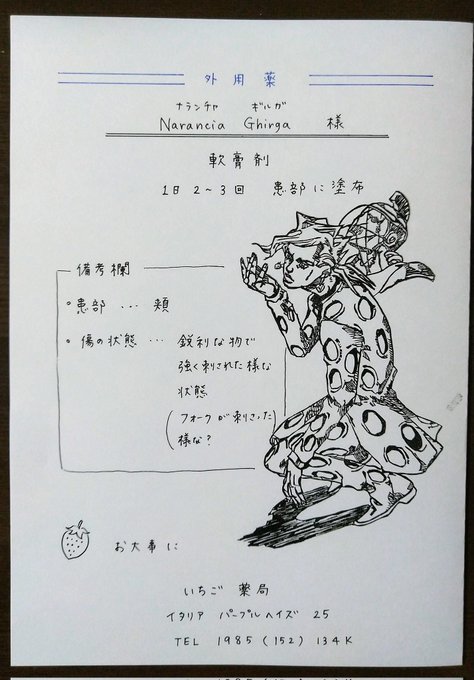 外用薬
ナランチャ ギルガ
Narancia Ghirga 様
軟膏剤
1日 2～3回 患部に塗布
備考欄
・患部 ... 頬
・傷の状態 ... 鋭利な物で
強く刺された様な
状態
(フォークが刺さった
様な?)
お大事に
いちご 薬局
イタリア パープルヘイズ 25
TEL 1985 (152) 134K